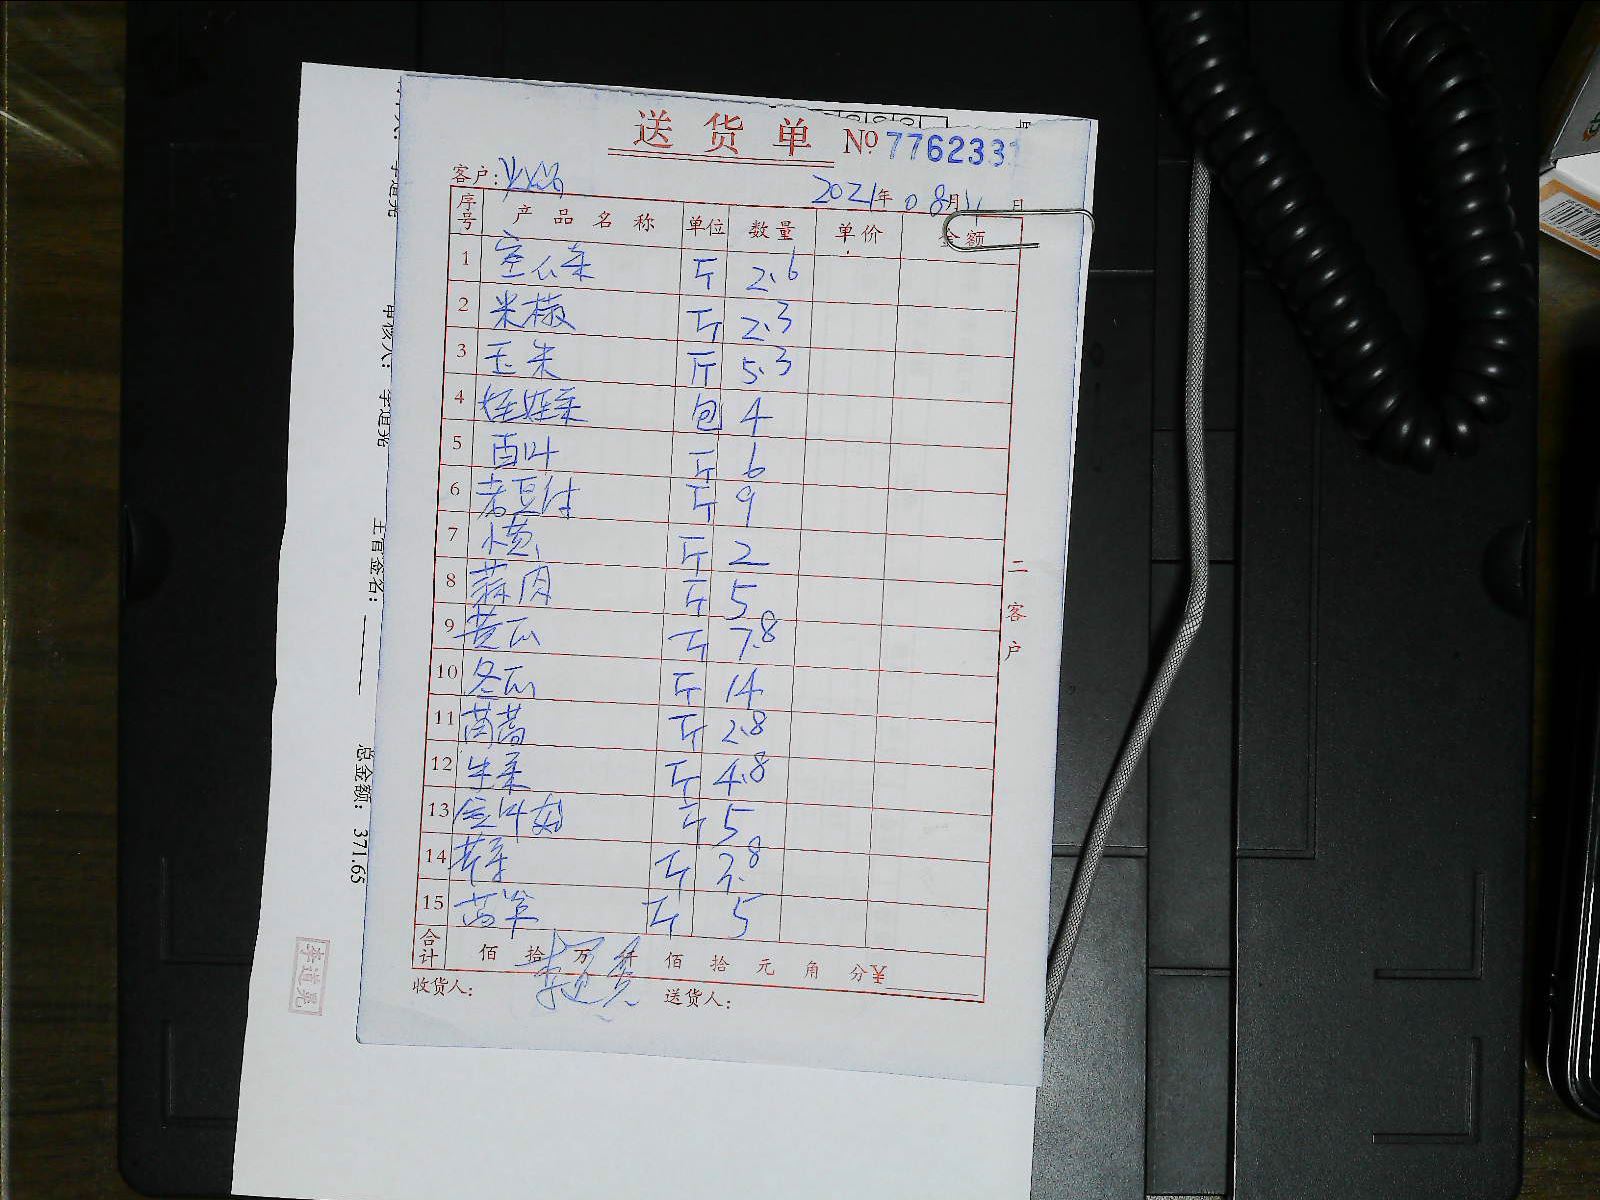 送货单 № 7762331
客户:
2021年08月11日
序号 产品名称 单位 数量 单价 金额
1 空心菜 斤 2.6
2 米椒 斤 2.3
3 玉米 斤 5.3
4 娃娃菜 包 4
5 百叶 斤 6
6 老豆付 斤 9
7 斤 2
8 蒜肉 斤 5
9 黄瓜 斤 7.8
10 冬瓜 斤 14
11 茼蒿 斤 2.8
12 生菜 斤 4.8
13 斤 5
14 芹 斤 3.8
15 斤 5
合计 佰 拾 万 仟 佰 拾 元 角 分¥
收货人: 李道亮 送货人:
二客户
李道亮
审核人: 李道亮
主管签名:
总金额: 371.65
李道亮